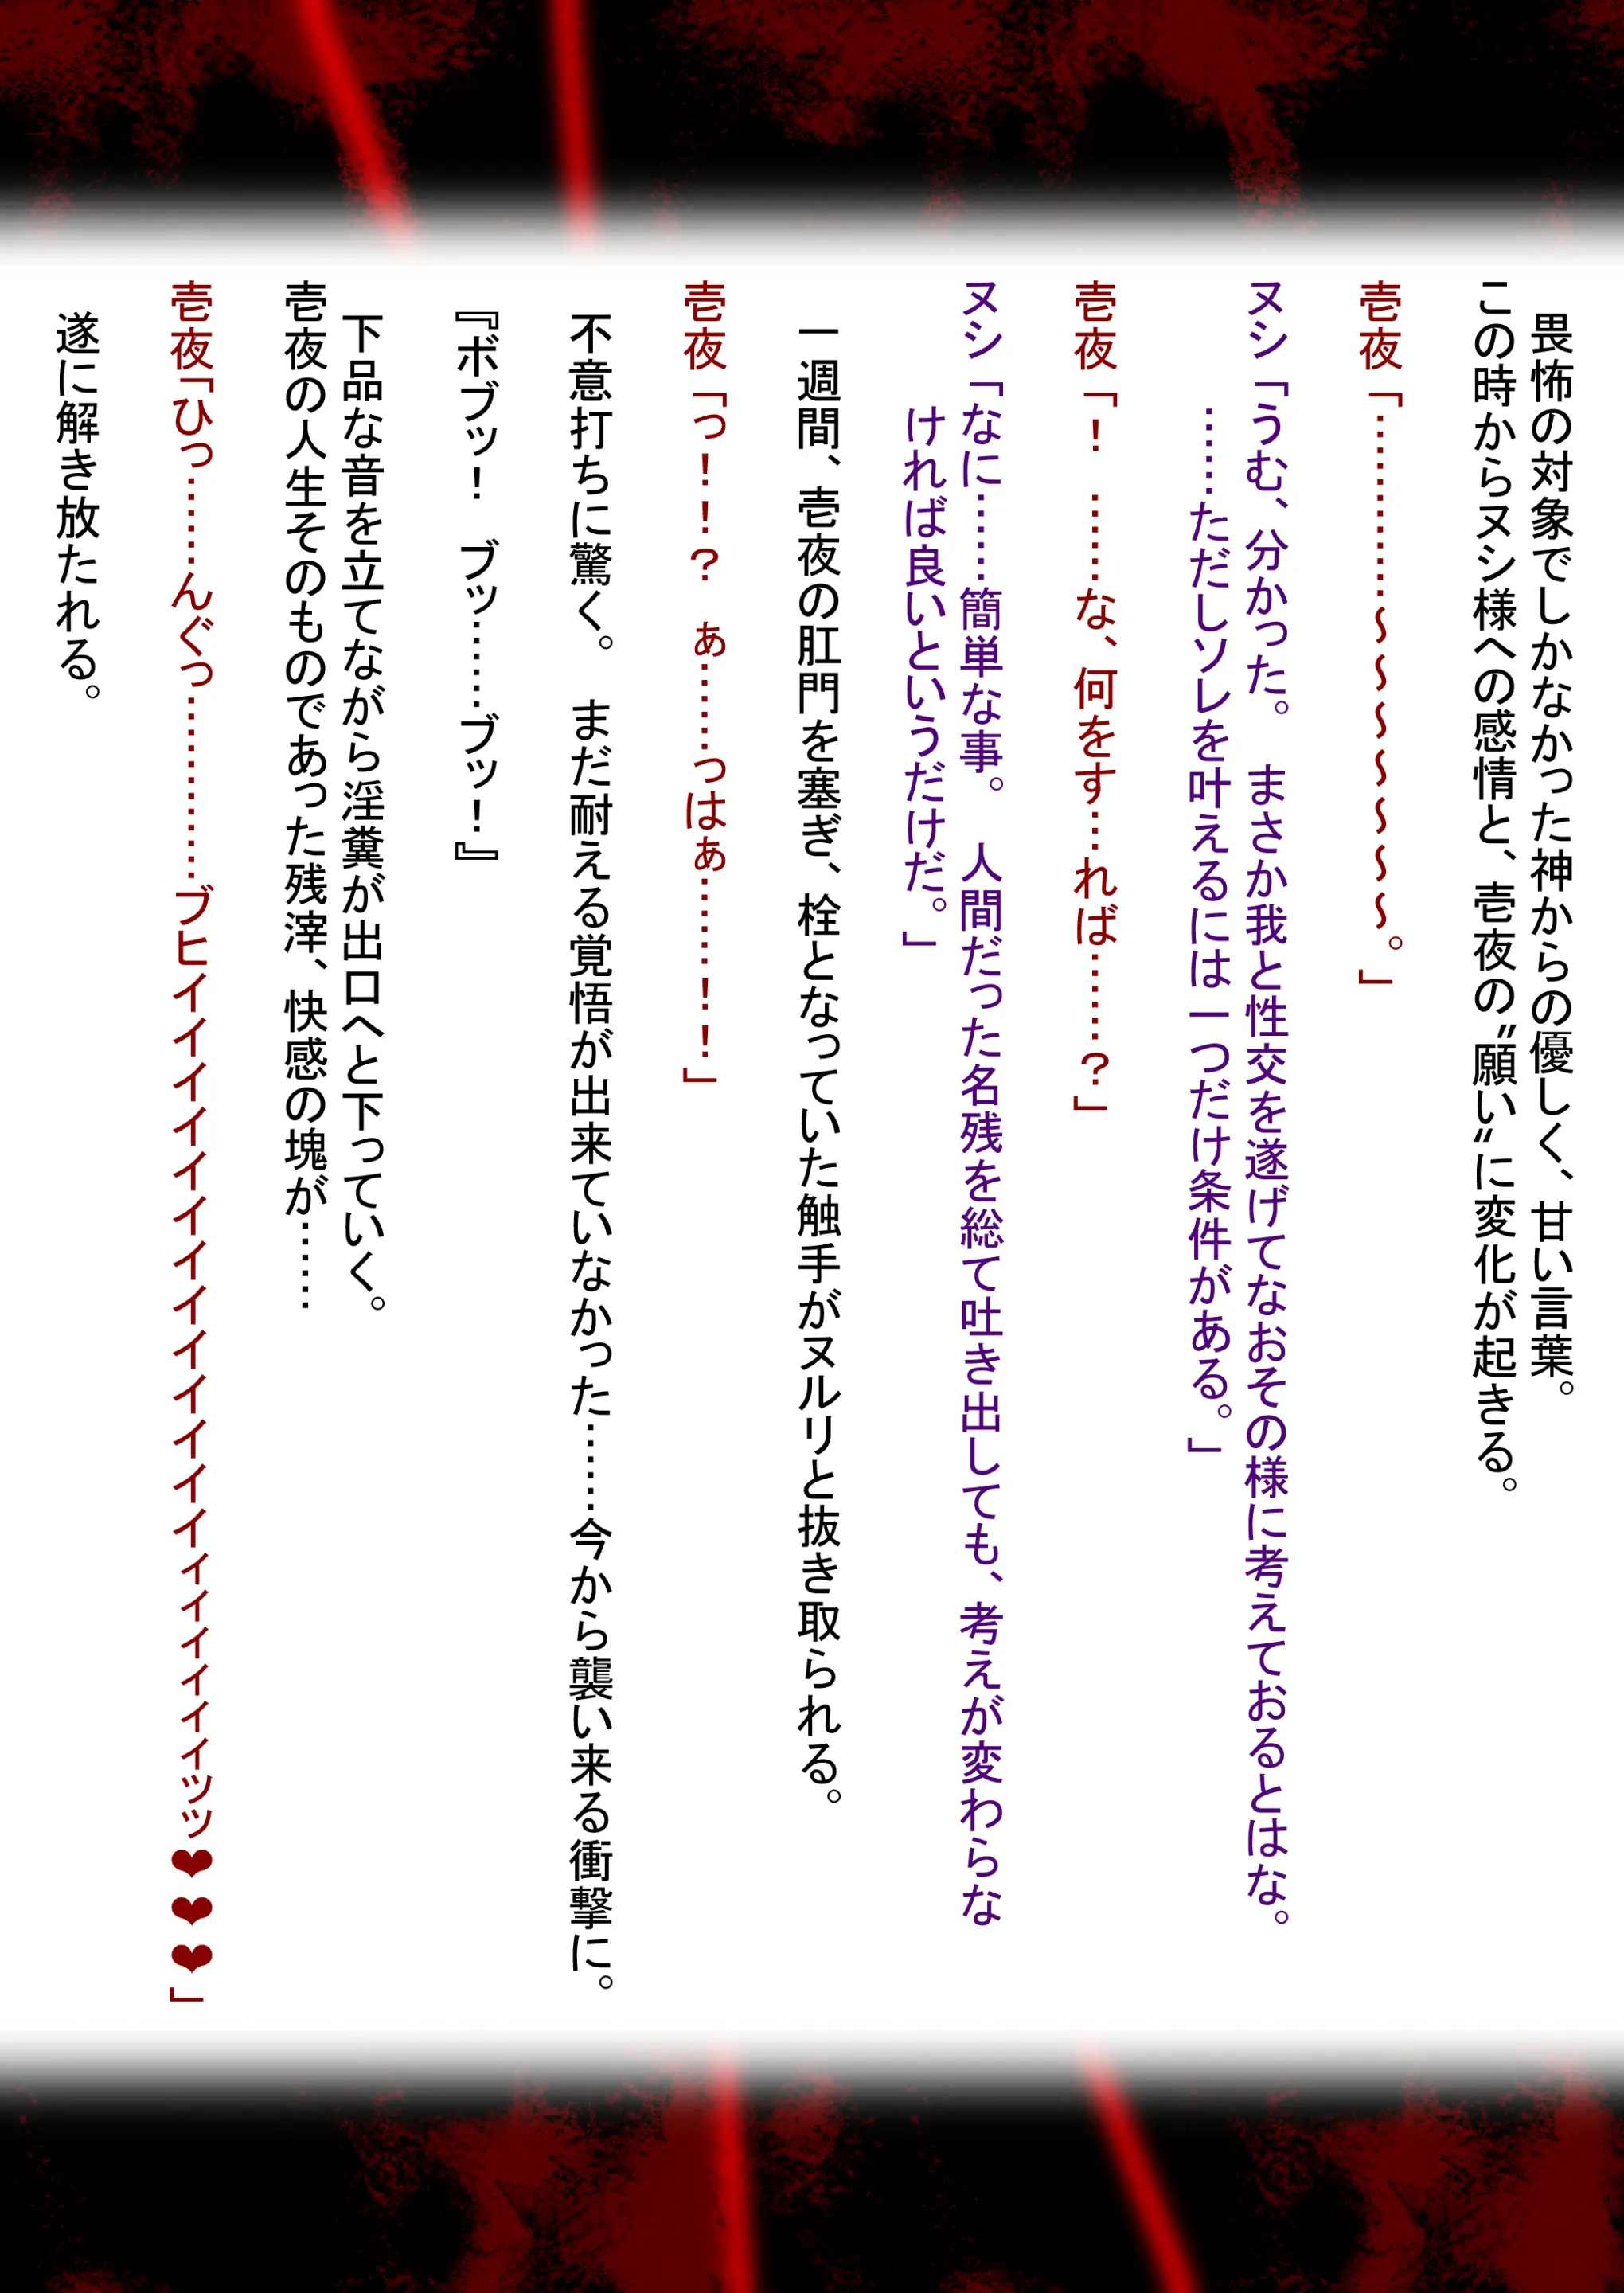 畏怖の対象でしかなかった神からの優しく、甘い言葉。
この時からヌシ様への感情と、壱夜の〝願い〟に変化が起きる。
壱夜「…………～～～～～～～。」
ヌシ「うむ、分かった。　まさか我と性交を遂げてなおその様に考えておるとはな。
……ただしソレを叶えるには一つだけ条件がある。」
壱夜「！　……な、何をす…れば……？」
ヌシ「なに……簡単な事。　人間だった名残を総て吐き出しても、考えが変わらな
ければ良いというだけだ。」
　一週間、壱夜の肛門を塞ぎ、栓となっていた触手がヌルリと抜き取られる。
壱夜「っ！！？　ぁ……っはぁ………！！」
　不意打ちに驚く。　まだ耐える覚悟が出来ていなかった……今から襲い来る衝撃に。
『ボブッ！　ブッ……ブッ！』
　下品な音を立てながら淫糞が出口へと下っていく。
壱夜の人生そのものであった残滓、快感の塊が……
壱夜「ひっ……んぐっ…………ブヒイイイイイイイイイイイイイィィィィィィッッ❤❤❤」
　遂に解き放たれる。